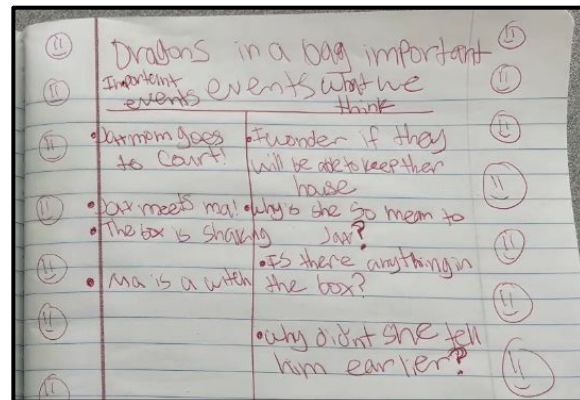 Dragons in a bag important
events
Important
events
What we
think
• Jax mom goes
to court!
• I wonder if they
will be able to keep ther
house
• Jax meets ma!
• Why is she so mean to
Jax?
• The box is shaking
• Is there anything in
the box?
• Ma is a witch
• why didnt she tell
him earlier?